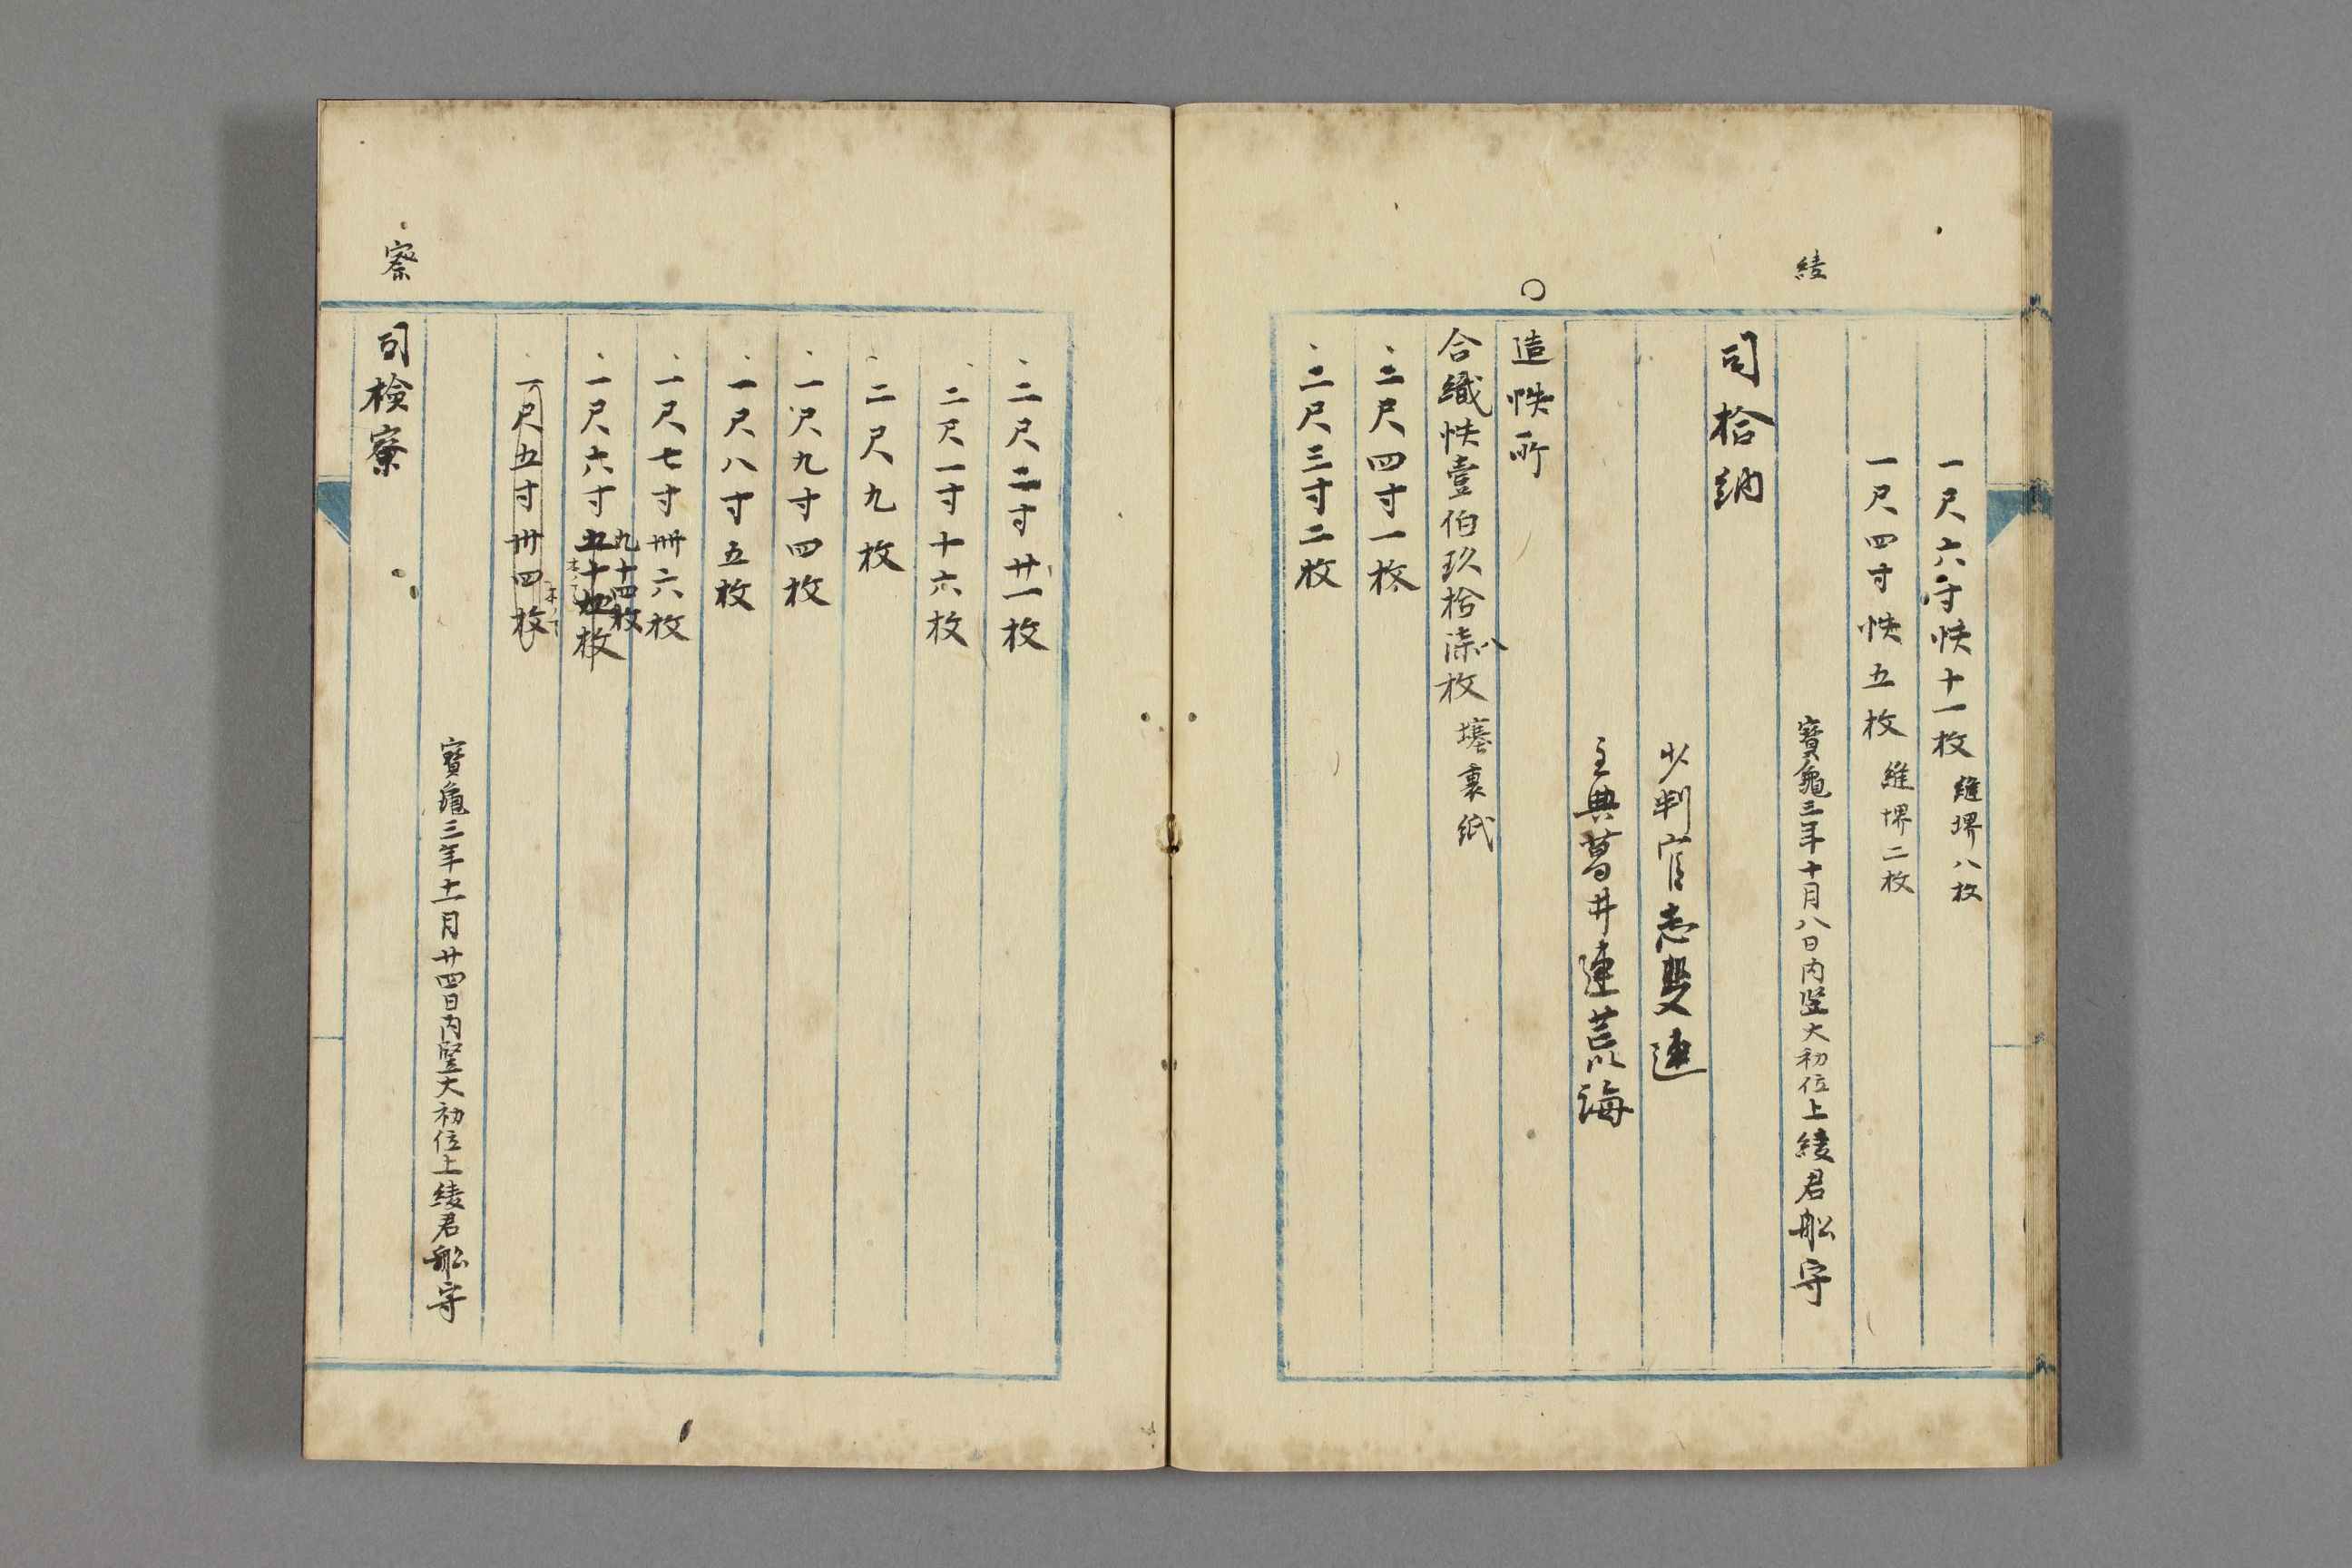 綾
一尺六寸帙十一枚 縫堺八枚
一尺四寸帙五枚 縫堺二枚
寶龜三年十月八日内竪大初位上綾君船守
司拾納
少判官志斐連
主典葛井連荒海
造帙所
合織帙壹伯玖拾漆八枚 裏紙
二尺四寸一枚
二尺三寸二枚
二尺二寸廿一枚
二尺一寸十六枚
二尺九枚
一尺九寸四枚
一尺八寸五枚
一尺七寸卌六枚
九十四枚
一尺六寸五十四枚
一尺五寸卌四枚
寶龜三年十一月廿四日内竪大初位上綾君船守
察
司檢寮